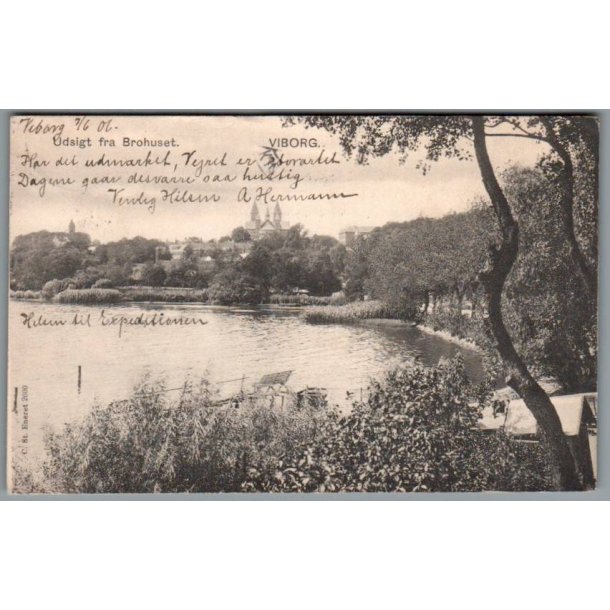 Viborg 7/6 06.
Udsigt fra Brohuset. VIBORG.
Har det udmærket, Vejret er storartet
Dagene gaar desværre saa hurtig
Venlig Hilsen A Hermann
Hilsen til Expeditionen
C. St. Eneret 2000